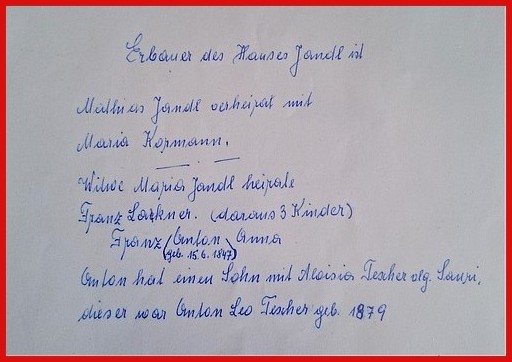 Erbauer des Hauses Jandl ist
Mathias Jandl verheirat mit
Maria Kopmann.
Witwe Maria Jandl heirate
Franz Lackner. (daraus 3 Kinder)
Franz Anton Anna
(geb. 15.6. 1847)
Anton hat einen Sohn mit Aloisia Tescher vlg. Sauri,
dieser war Anton Leo Tischer geb. 1879